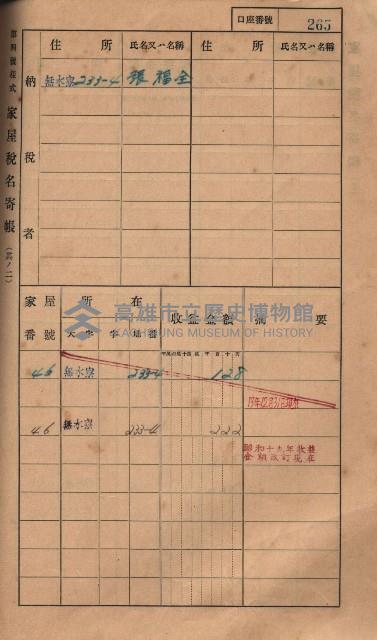 第四號樣式 家屋稅名寄帳 (其ノ二)
口座番號 265
納稅者
住所 氏名又ハ名稱 住所 氏名又ハ名稱
無水寮233-4 張福全
家屋番號 所在 收益金額 摘要
大字 字 地番
46 無水寮 233-4 128
46 無水寮 233-4 222
昭和十九年收益
金額改訂現在
高雄市立歷史博物館
KAOHSIUNG MUSEUM OF HISTORY